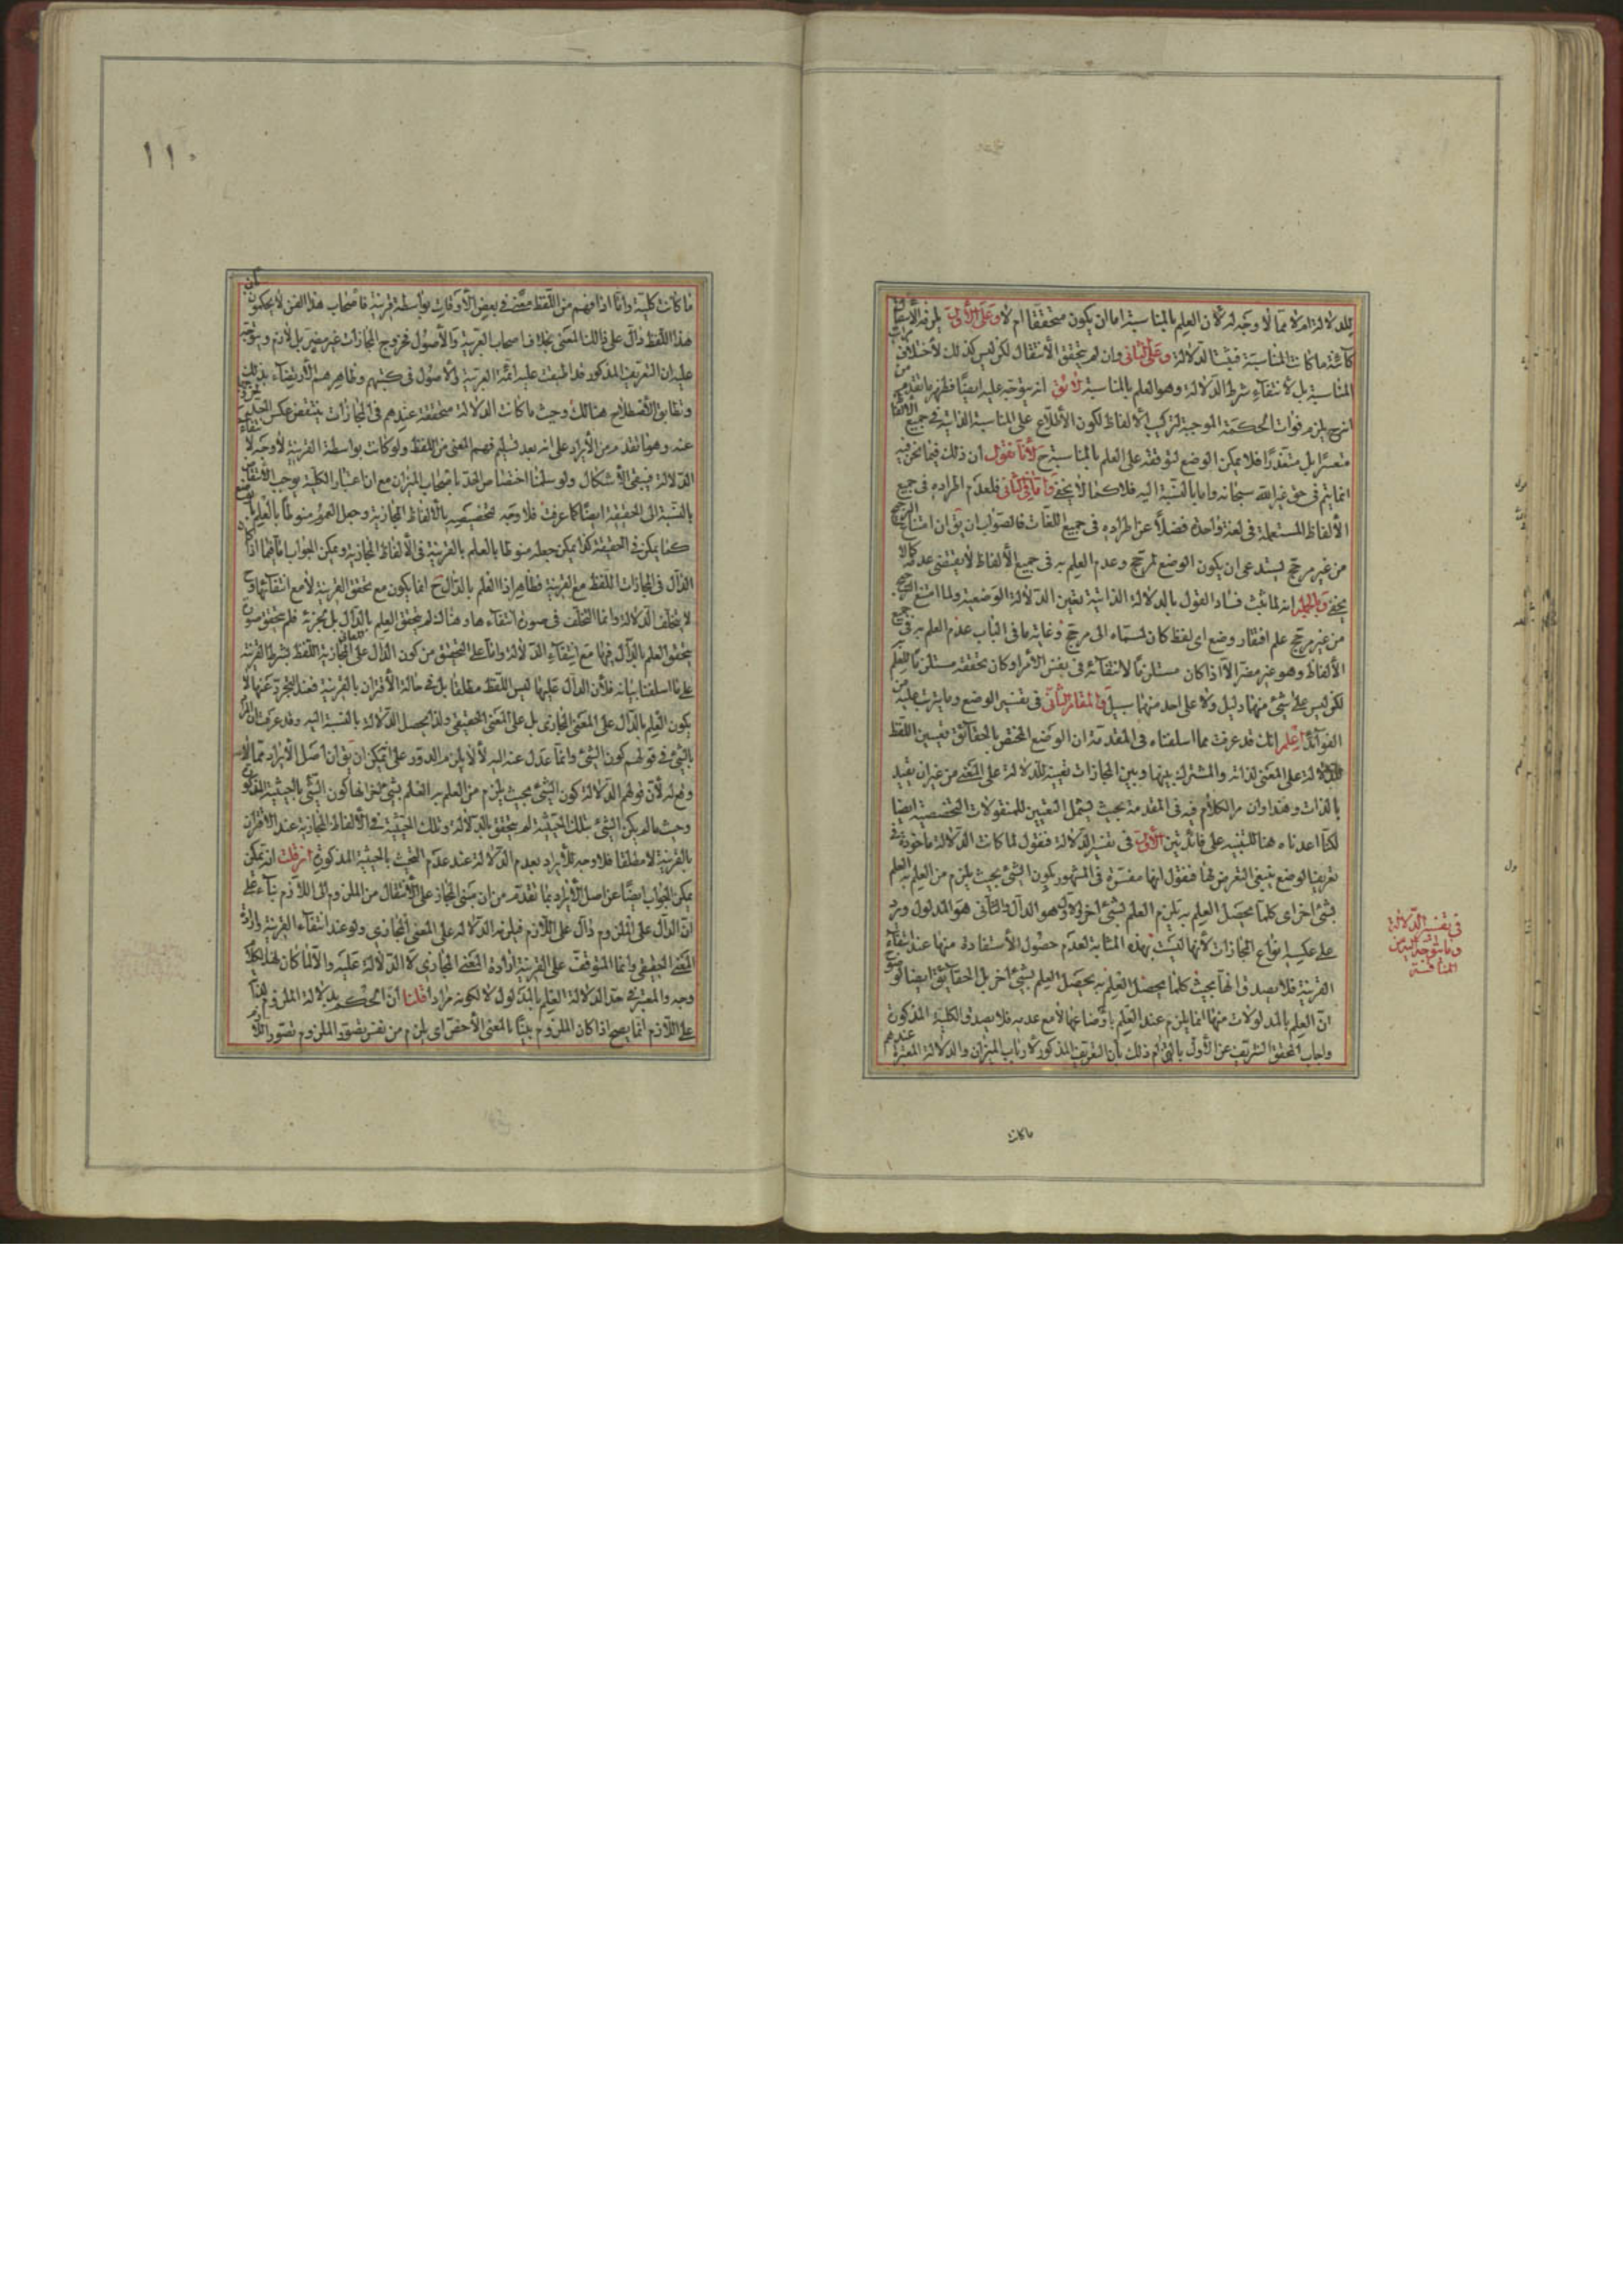 للدلالة ام لا مما لا وجه له لان العلم بالمناسبة اما ان يكون متحققا ام لا وعلى الاول يلزمه الانتقال
كائنة ما كانت المناسبة فيثبت الدلالة وعلى الثاني وان لم يتحقق الانتقال لكن ليس كذلك لاختلاف
المناسبة بل لانتفاء شرط الدلالة وهو العلم بالمناسبة لا يق انه يتوجه عليه ايضا فظهر ما تقدم من
انه ح يلزم فوات الحكمة الموجبة لتركيب الالفاظ لكون الاطلاع على المناسبة الذاتية في جميع الالفاظ
متعسرا بل متعذرا فلا يمكن الوضع لتوقفه على العلم بالمناسبة ح لانا نقول ان ذلك فيما نحن فيه
انما يتم في حق غير الله سبحانه واما بالنسبة اليه فلا كما لا يخفى واما في الثاني فلعدم اطراده في جميع
الالفاظ المستعملة في لغة واحدة فضلا عن اطراده في جميع اللغات فالصواب ان يق ان امتناع الترجيح
من غير مرجح يستدعي ان يكون الوضع لمرجح وعدم العلم به في جميع الالفاظ لا يقتضي عدمه كما لا
يخفى وبالجملة انه لما ثبت فساد القول بالدلالة الذاتية تعين الدلالة الوضعية ولما امتنع الترجيح
من غير مرجح علم افتقار وضع اي لفظ كان لمسماه الى مرجح وغاية ما في الباب عدم العلم به في جميع
الالفاظ وهو غير مضر الا اذا كان مستلزما لانتفائه في نفس الامر او كان تحققه مستلزما للعلم
لكن ليس على شيء منهما دليل ولا على احد منهما سبيل والمقام الثاني في تفسير الوضع وما يترتب عليه من
الفوائد اعلم انك قد عرفت مما اسلفناه في المقدمة ان الوضع المختص بالحقائق تعيين اللفظ
للدلالة على المعنى لذاته والمشترك بينها وبين المجازات تعيينه للدلالة على المعنى من غير ان يقيد
بالذات وهذا وان مر الكلام فيه في المقدمة بحيث يشمل التعيين للمنقولات التخصصية ايضا
لكنا اعدناه هنا للتنبيه على فائدتين الاولى في تفسير الدلالة فنقول لما كانت الدلالة ماخوذة في
تعريف الوضع ينبغي التعرض لها فنقول انها مفسرة في المشهور بكون الشيء بحيث يلزم من العلم به العلم
بشيء اخر اي كلما يحصل العلم به يلزم العلم بشيء اخر والاول هو الدال والثاني هو المدلول ويرد
على عكسه انواع المجازات لانها ليست بهذه المثابة لعدم حصول الاستفادة منها عند انتفاء
القرينة فلا يصدق انها بحيث كلما يحصل العلم به يحصل العلم بشيء اخر بل الحقائق ايضا لوضوح
ان العلم بالمدلولات منها انما يلزم عند العلم باوضاعها لا مع عدمه فلا يصدق الكلية المذكورة
واجاب المحقق الشريف عن الاول بالتزام ذلك بان التعريف المذكور لارباب الميزان والدلالة المعتبرة عندهم
في تفسير الدلالة
وما يتوجه اليه من
المناقشة
ما كانت
١١٠
ما كانت كلية واما اذا فهم من اللفظ معنى في بعض الاوقات بواسطة قرينة فاصحاب هذا الفن لا يحكمون بان
هذا اللفظ دال على ذلك المعنى بخلاف اصحاب العربية والاصول فخروج المجازات غير مضر بل لازم ويتوجه
عليه ان التعريف المذكور قد اطبقت عليه ائمة العربية والاصول في كتبهم وظاهرهم الارتضاء بذلك
وتطابق الاصطلاح هنالك وحيث ما كانت الدلالة متحققة عندهم في المجازات ينتقض عكس الحد بخروجها
عنه وهو ما تقدم من الايراد على انه بعد تسليم فهم المعنى من اللفظ ولو كانت بواسطة القرينة لا وجه لانتفاء
الدلالة فيبقى الاشكال ولو سلمنا اختصاص الحد باصحاب الميزان مع ان اعتبار الكلية يوجب الانتقاض
بالنسبة الى الحقيقة ايضا كما عرفت فلا وجه لتخصيصه بالالفاظ المجازية وجعل العموم منوطا بالعلم بالوضع
كما يمكن في الحقيقة كذا يمكن جعله منوطا بالعلم بالقرينة في الالفاظ المجازية ويمكن الجواب اما فيما اذا كان
الدال في المجازات اللفظ مع القرينة فظاهر اذ العلم بالدال ح انما يكون مع تحقق القرينة لا مع انتفائها و
لا يتخلف الدلالة وانما التخلف في صورة انتفاءها وهنالك لم يتحقق العلم بالدال بل بجزئه فلم يتحقق صورة
يتحقق العلم بالدال فيها مع انتفاء الدلالة واما على التحقيق من كون الدال على المعاني المجازية اللفظ بشرط القرينة
على ما اسلفنا بيانه فلان الدال عليها ليس اللفظ مطلقا بل في حالة الاقتران بالقرينة فعند التجرد عنها لا
يكون العلم بالدال على المعنى المجازي بل على المعنى الحقيقي ولذا يحصل الدلالة بالنسبة اليه وقد عرفت ان المراد
بالشيء في قولهم كون الشيء وانما عدل عنه اليه لئلا يلزم الدور على انه يمكن ان يق ان اصل الايراد مما لا
وقع له لان قولهم الدلالة كون الشيء بحيث يلزم من العلم به العلم بشيء اخر معناها كون الشيء بالحيثية المذكورة
وحيث ما لم يكن الشيء بتلك الحيثية لم يتحقق بالدلالة وتلك الحيثية في الالفاظ المجازية عند الاقتران
بالقرينة لا مطلقا فلا وجه للايراد بعدم الدلالة عند عدم التحيث بالحيثية المذكورة ان قلت انه يمكن
يمكن الجواب ايضا عن اصل الايراد بما تقدم من ان مبنى المجاز على الانتقال من الملزوم الى اللازم بناء على
ان الدال على الملزوم دال على اللازم فيلزمه الدلالة على المعنى المجازي ولو عند انتفاء القرينة وارادة
المعنى الحقيقي وانما المتوقف على القرينة ارادة المعنى المجازي لا الدلالة عليه والا لما كان لهذا الكلام
وجه والمعتبر في حد الدلالة العلم بالمدلول لا لكونه مرادا قلنا ان الحكم بدلالة الملزوم
على اللازم انما يصح اذا كان الملزوم بينا بالمعنى الاخص اي يلزم من نفس تصور الملزوم تصور اللازم